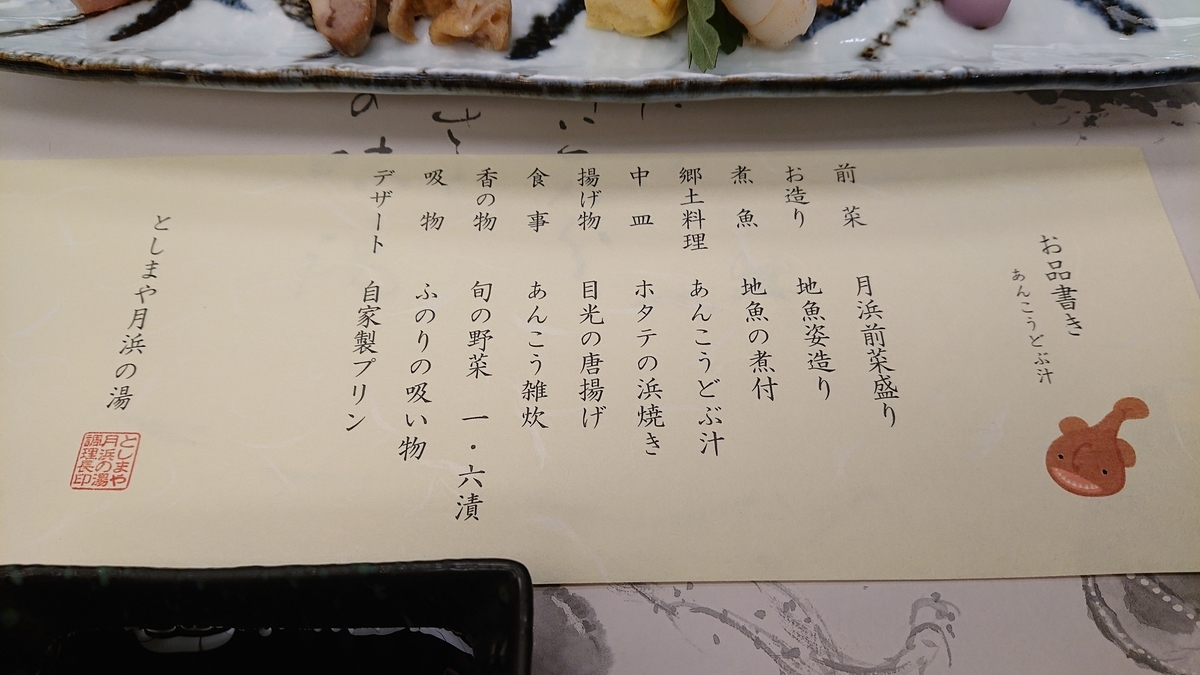 お品書き
あんこうどぶ汁
前菜 月浜前菜盛り
お造り 地魚姿造り
煮魚 地魚の煮付
郷土料理 あんこうどぶ汁
中皿 ホタテの浜焼き
揚げ物 目光の唐揚げ
食事 あんこう雑炊
香の物 旬の野菜 一・六漬
吸物 ふのりの吸い物
デザート 自家製プリン
としまや月浜の湯
としまや
月浜の湯
調理長印